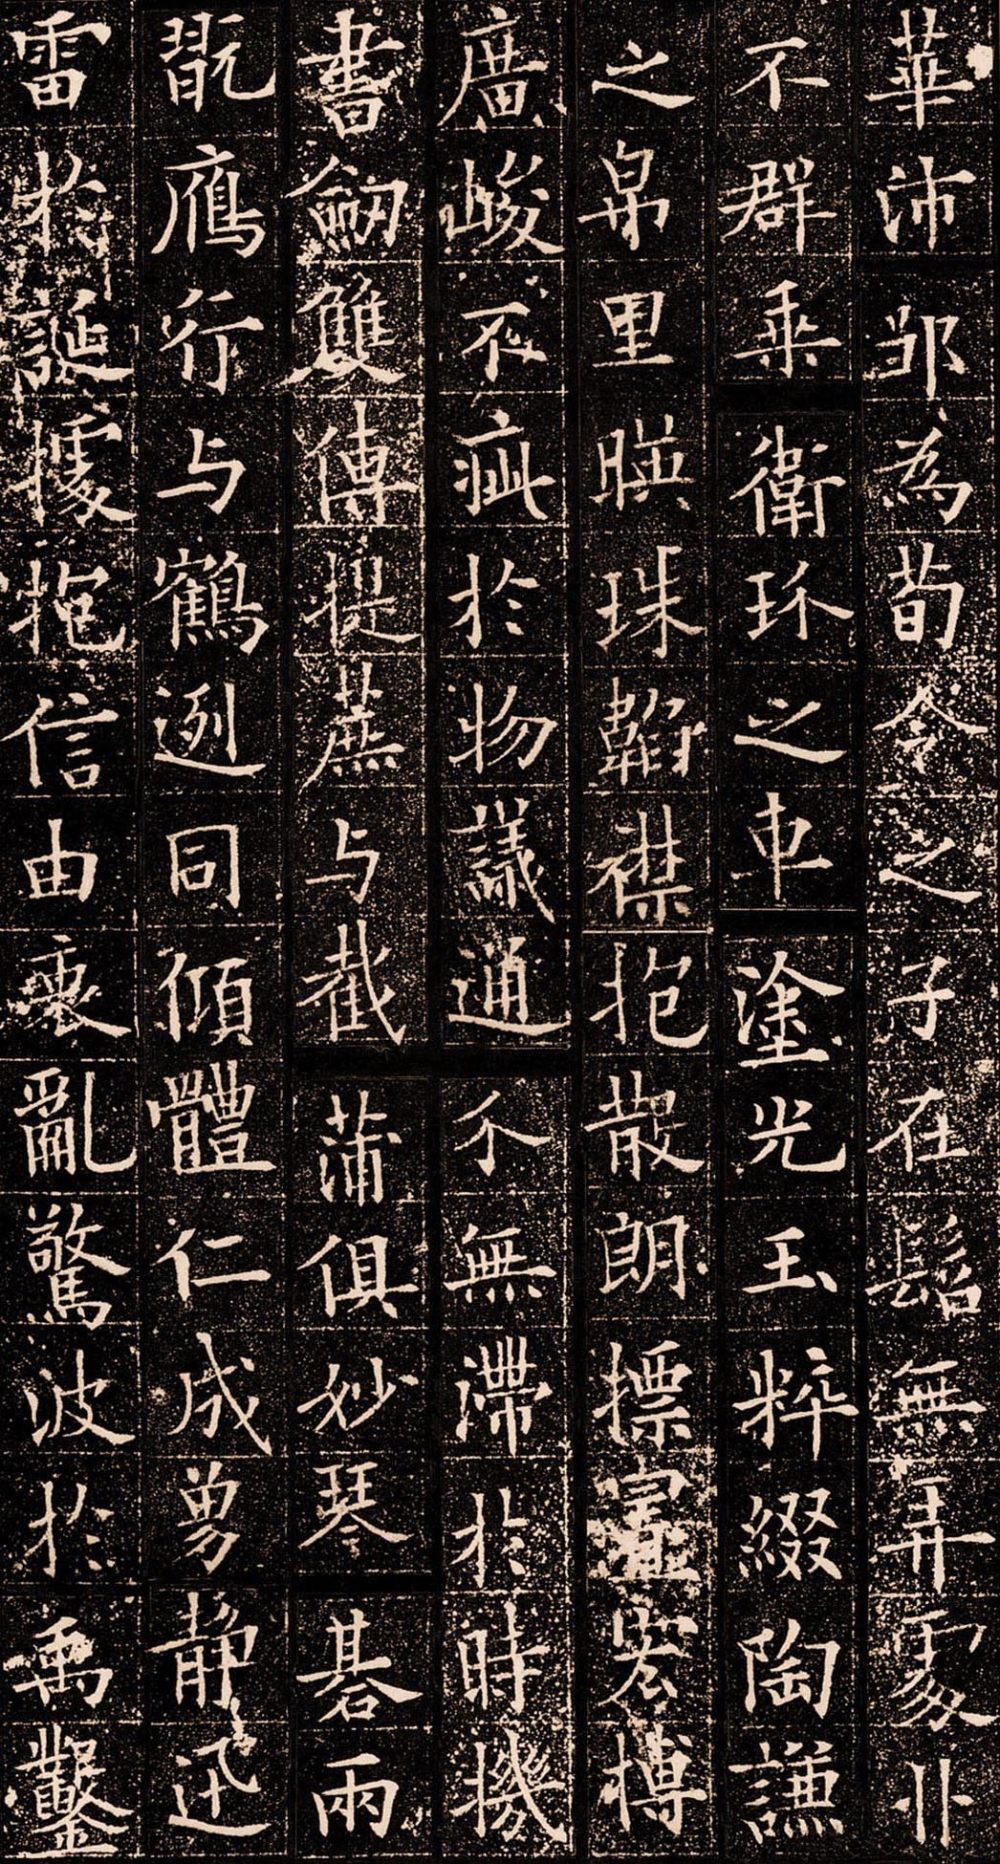 華沛邹為荀令之子在髫無弄處丱
不群乗衛玠之車塗光玉粹綴陶謙
之帛里暎珠韜襟抱散朗摽置宏博
廣峻不疵於物議通尒無滯於時機
書劒雙傳提蕉与截蒲俱妙琴碁兩
翫鴈行与鶴迾同傾體仁成勇静迅
雷於誕據抱信由衷亂驚波於禹鑿